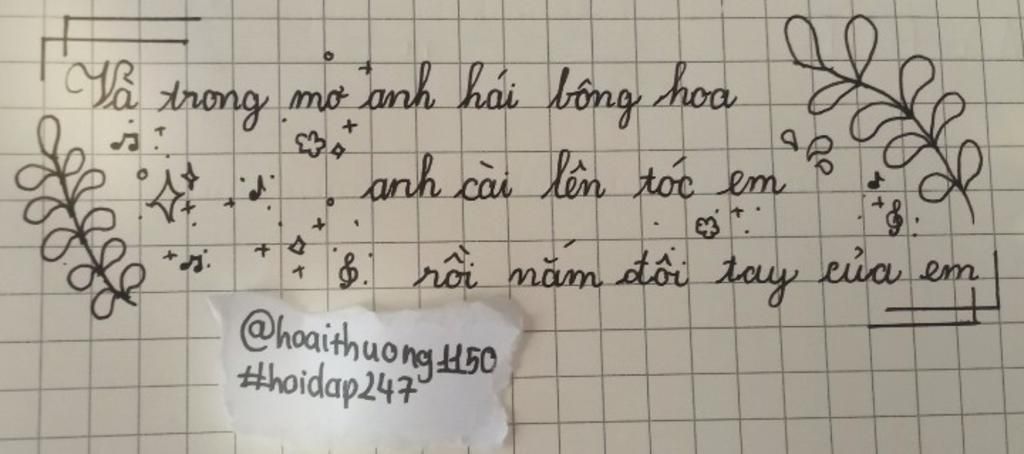 Và trong mơ anh hái bông hoa
anh cài lên tóc em
rồi nắm đôi tay của em
@hoaithuong1150
#hoidap247